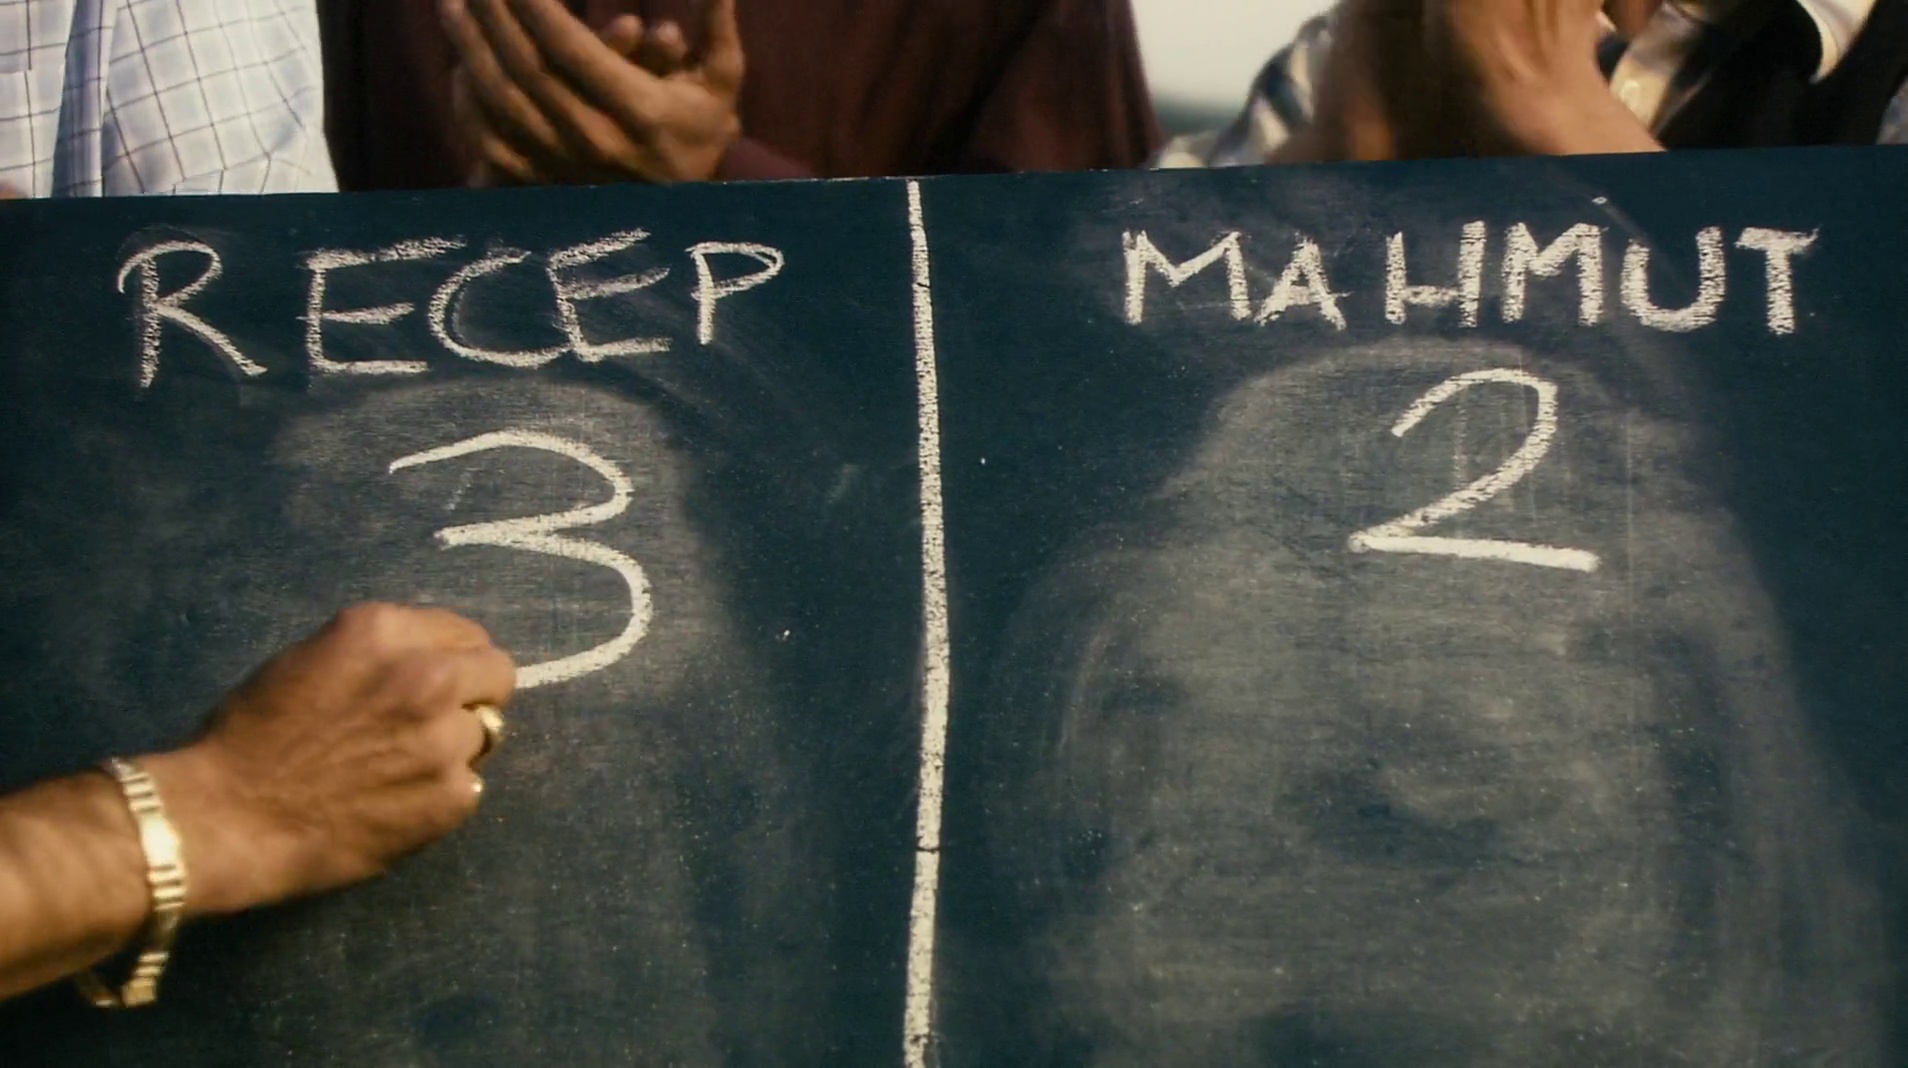 RECEP MAHMUT
3 2